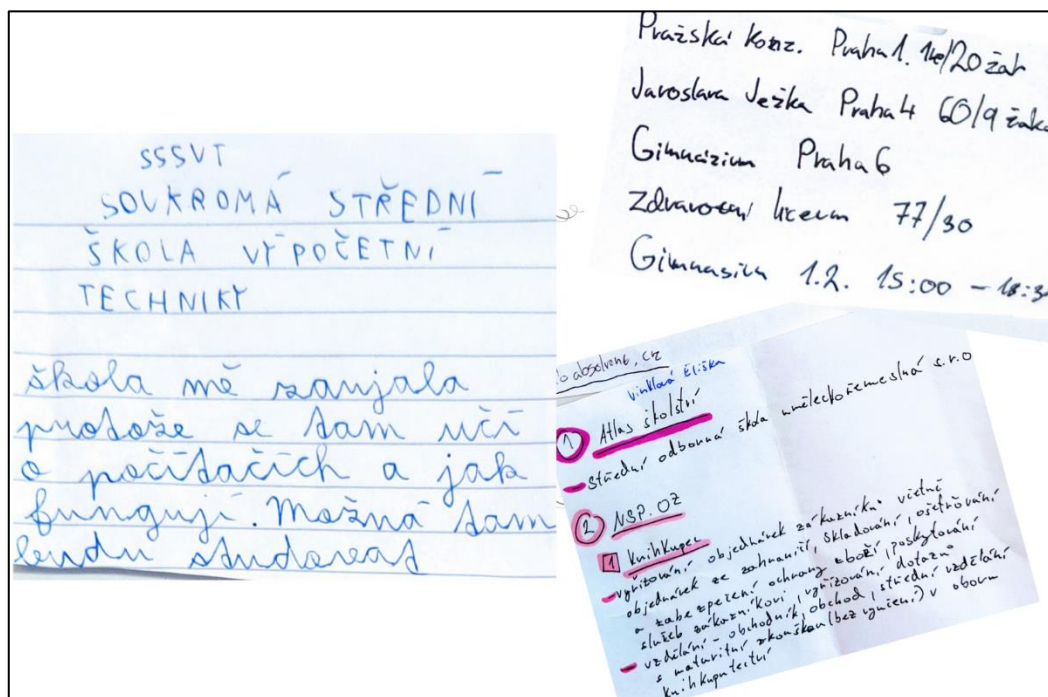 SSSVT
SOUKROMÁ STŘEDNÍ
ŠKOLA VÝPOČETNÍ
TECHNIKY
škola mě zaujala
protože se tam učí
o počítačích a jak
fungují. Možná tam
budu studovat
Pražská konz. Praha 1. 14/20 žák
Jaroslava Ježka Praha 4 60/9 žáka
Gimnázium Praha 6
Zdravotní liceum 77/30
Gimnasium 1.2. 15:00 - 18:3
absolvent, cz
Vinklová Eliška
1 Atlas školství
- Střední odborná škola uměleckořemeslná s.r.o
2 NSP.OZ
1 Knihkupec
- vyřizování objednávek zákazníků včetně
objednávek ze zahraničí, skladování, ošetřování
a zabezpečení ochrany zboží, poskytování
služeb zákazníkovi, vyřizování dotazů
- vzdělání - obchodník, obchod, střední vzdělání
s maturitní zkouškou (bez vyučení) v oboru
knihkupectví